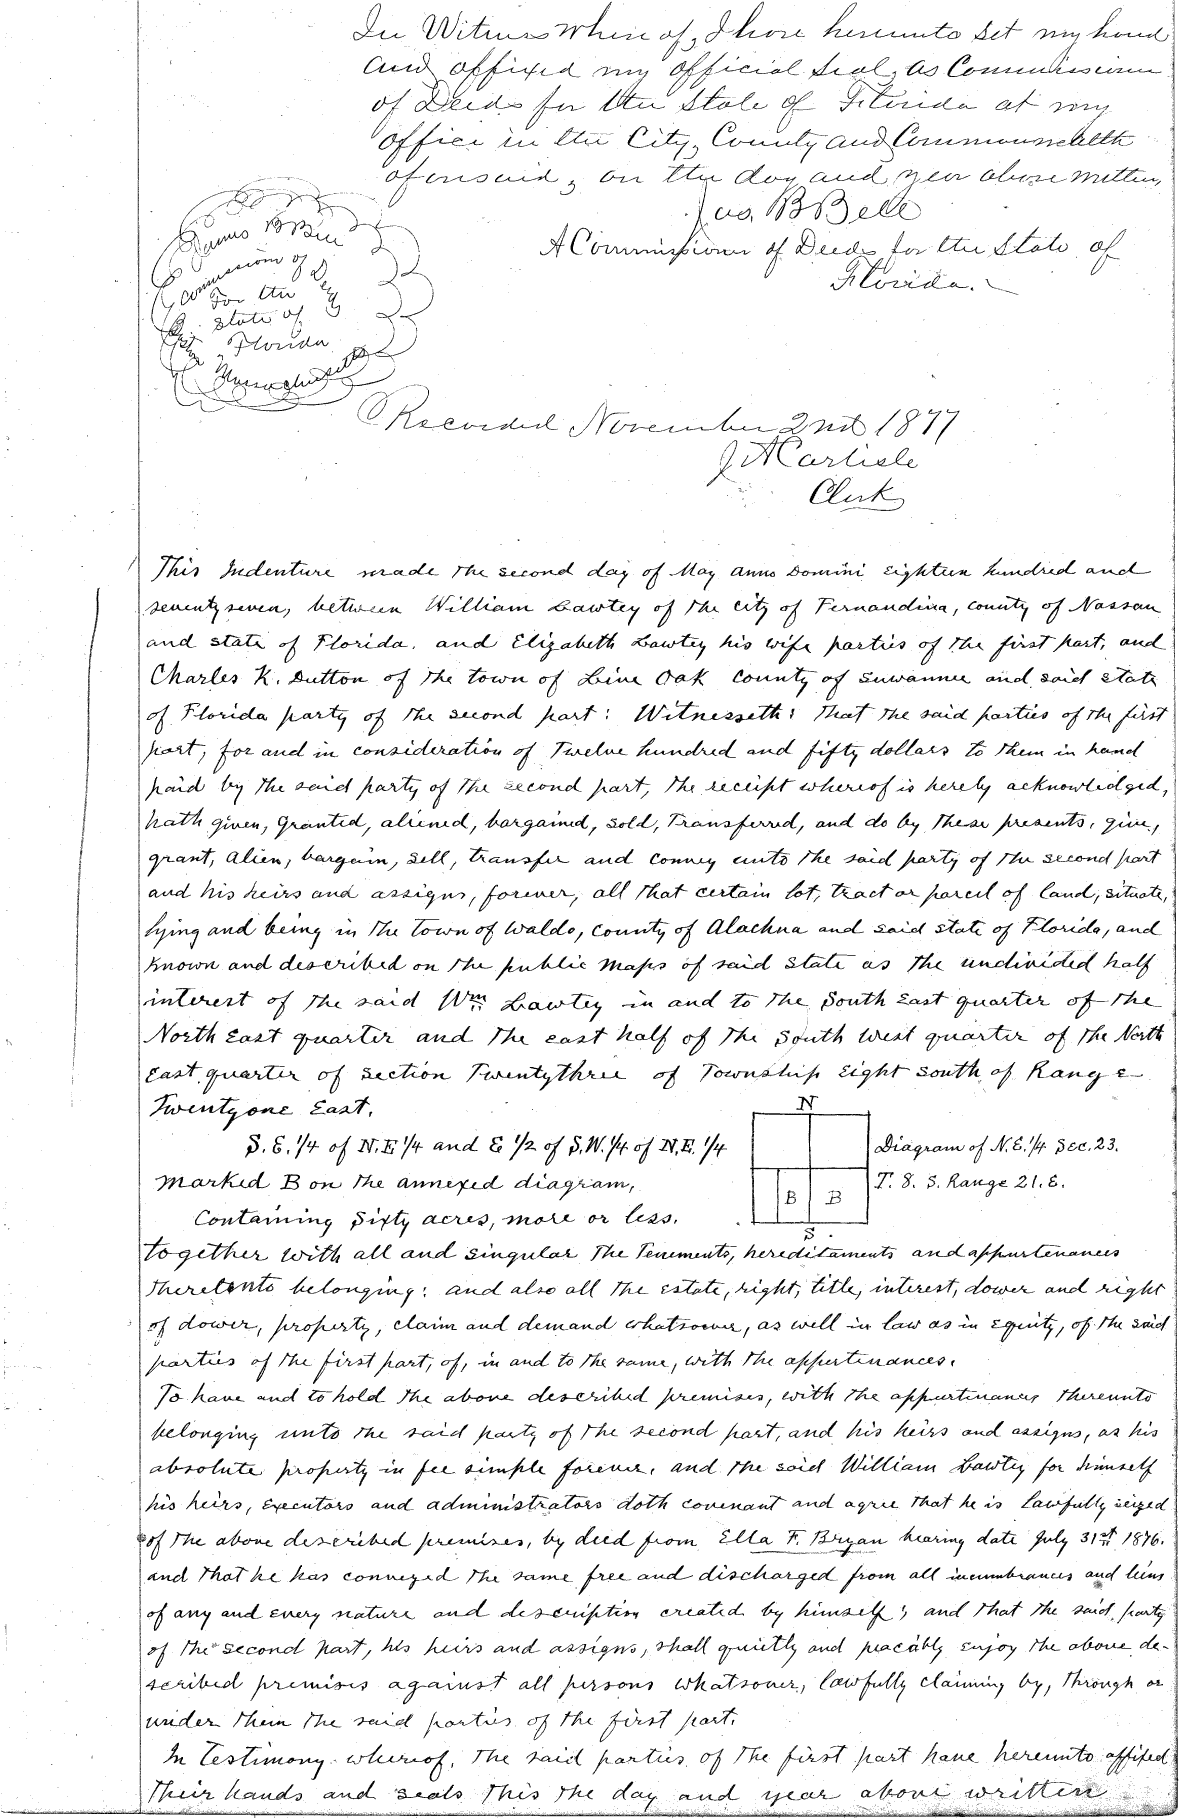 In Witness Where of, I have hereunto set my hand
and affixed my official seal, as Commissioner
of Deeds for the State of Florida at my
office in the City, County and Commonwealth
aforesaid, on the day and year above written,
Jas. B Bell
A Commissioner of Deeds for the State of
Florida.
James B Bell
Commissioner of
For the
State of
Florida
Recorded November 2nd 1877
J A Carlisle
Clerk
This Indenture made the second day of May anno Domini eighteen hundred and
seventy seven, between William Lawtey of the city of Fernandina, county of Nassau
and state of Florida, and Elizabeth Lawtey his wife parties of the first part, and
Charles K. Dutton of the town of Live Oak county of Suwannee and said state
of Florida party of the second part: Witnesseth: that the said parties of the first
part, for and in consideration of Twelve hundred and fifty dollars to them in hand
paid by the said party of the second part, the receipt whereof is hereby acknowledged,
hath given, granted, aliened, bargained, sold, transferred, and do by these presents, give,
grant, alien, bargain, sell, transfer and convey unto the said party of the second part
and his heirs and assigns, forever, all that certain lot, tract or parcel of land, situate,
lying and being in the town of Waldo, county of Alachua and said state of Florida, and
known and described on the public maps of said State as the undivided half
interest of the said Wm Lawtey in and to the South East quarter of the
North East quarter and the east half of the South West quarter of the North
East quarter of section Twentythree of Township Eight south of Range
Twentyone East.
N
S. E. 1/4 of N. E. 1/4 and E 1/2 of S. W. 1/4 of N. E. 1/4
Diagram of N. E. 1/4 Sec. 23.
marked B on the annexed diagram,
B B
T. 8. S. Range 21. E.
Containing Sixty acres, more or less.
S.
together with all and singular the Tenements, hereditaments and appurtenances
theretonto belonging: and also all the estate, right, title, interest, dower and right
of dower, property, claim and demand whatsoever, as well in law as in Equity, of the said
parties of the first part, of, in and to the same, with the appertinances.
To have and to hold the above described premises, with the appurtinances thereunto
belonging unto the said party of the second part, and his heirs and assigns, as his
absolute property in fee simple forever. and the said William Lawtey for himself
his heirs, executors and administrators doth covenant and agree that he is lawfully seized
of the above described premises, by deed from Ella F. Bryan bearing date July 31st 1876.
and that he has conveyed the same free and discharged from all incumbrances and liens
of any and every nature and description created by himself; and that the said party
of the second part, his heirs and assigns, shall quietly and peacably enjoy the above de-
scribed premises against all persons whatsoever, lawfully claiming by, through or
under them the said parties of the first part.
In Testimony whereof, the said parties of the first part have hereunto affixed
their hands and seals this the day and year above written